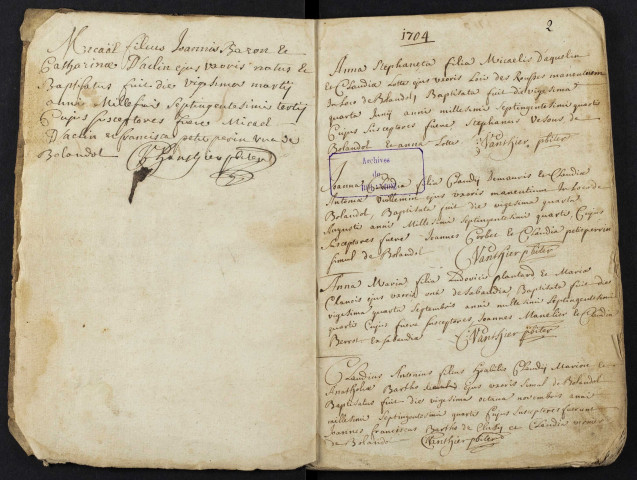 Micaël filius Joannis Baron et
Catharinæ D'aclin ejus uxoris natus et
Baptisatus fuit die vigesima martij
anni Millesimi Septingentesimi tertij
Cujus susceptores fuere Micael
D'aclin et francisca petit perrin
Bolandol
Vauthier pbiter
1704
2
Anna Stephaneta filia Micaelis Daquelin
et Claudiæ Lotte ejus uxoris
in loco de Bolandol, Baptisata fuit die vigesima
quarta Junij anni millesimi Septingentesimi quarti
Cujus Susceptores fuere Stephanus
Bolandol et anna Lotte
Vauthier pbiter
Archives
du
Joanna Claudia filia Claudij et Claudiæ
Antoniæ Vuillemin ejus uxoris manentium in loco de
Bolandol, Baptisata fuit die vigesima quarta
Augusti anni Millesimi Septingentesimi quarti Cujus
Susceptores fuere Joannes Corbet et Claudia petitperrin
simul de Bolandol
Vauthier pbiter
Anna Maria filia Ludovici plantard et Maria
ejus uxoris de Sabaudia Baptisata fuit die
vigesima quarta Septembris anni millesimi Septingentesimi
quarti Cujus fuere susceptores, Joannes et Claudia
Vauthier pbiter
Claudius Antonius filius Claudij Marion et
ejus uxoris simul de Bolandol
Baptisatus fuit die vigesima octava novembris anni
millesimi Septingentesimi quarti Cujus Susceptores fuerunt
Joannes franciscus Barthe de et Claudia
de Bolandol
Vauthier pbiter